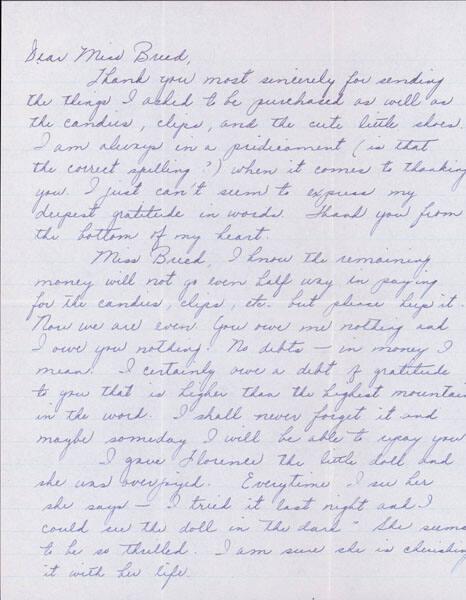 Dear Miss Breed,
Thank you most sincerely for sending
the things I asked to be purchased as well as
the candies, clips, and the cute little shoes.
I am always in a predicament (is that
the correct spelling?) when it comes to thanking
you. I just can't seem to express my
deepest gratitude in words. Thank you from
the bottom of my heart.
Miss Breed, I know the remaining
money will not go even half way in paying
for the candies, clips, etc. but please keep it.
Now we are even. You owe me nothing and
I owe you nothing. No debts — in money I
mean. I certainly owe a debt of gratitude
to you that is higher than the highest mountain
in the word. I shall never forget it and
maybe someday I will be able to repay you
I gave Florence the little doll and
she was overjoyed. Everytime I see her
she says — I tried it last night and I
could see the doll in the dark" She seems
to be so thrilled. I am sure she is cherishing
it with her life.